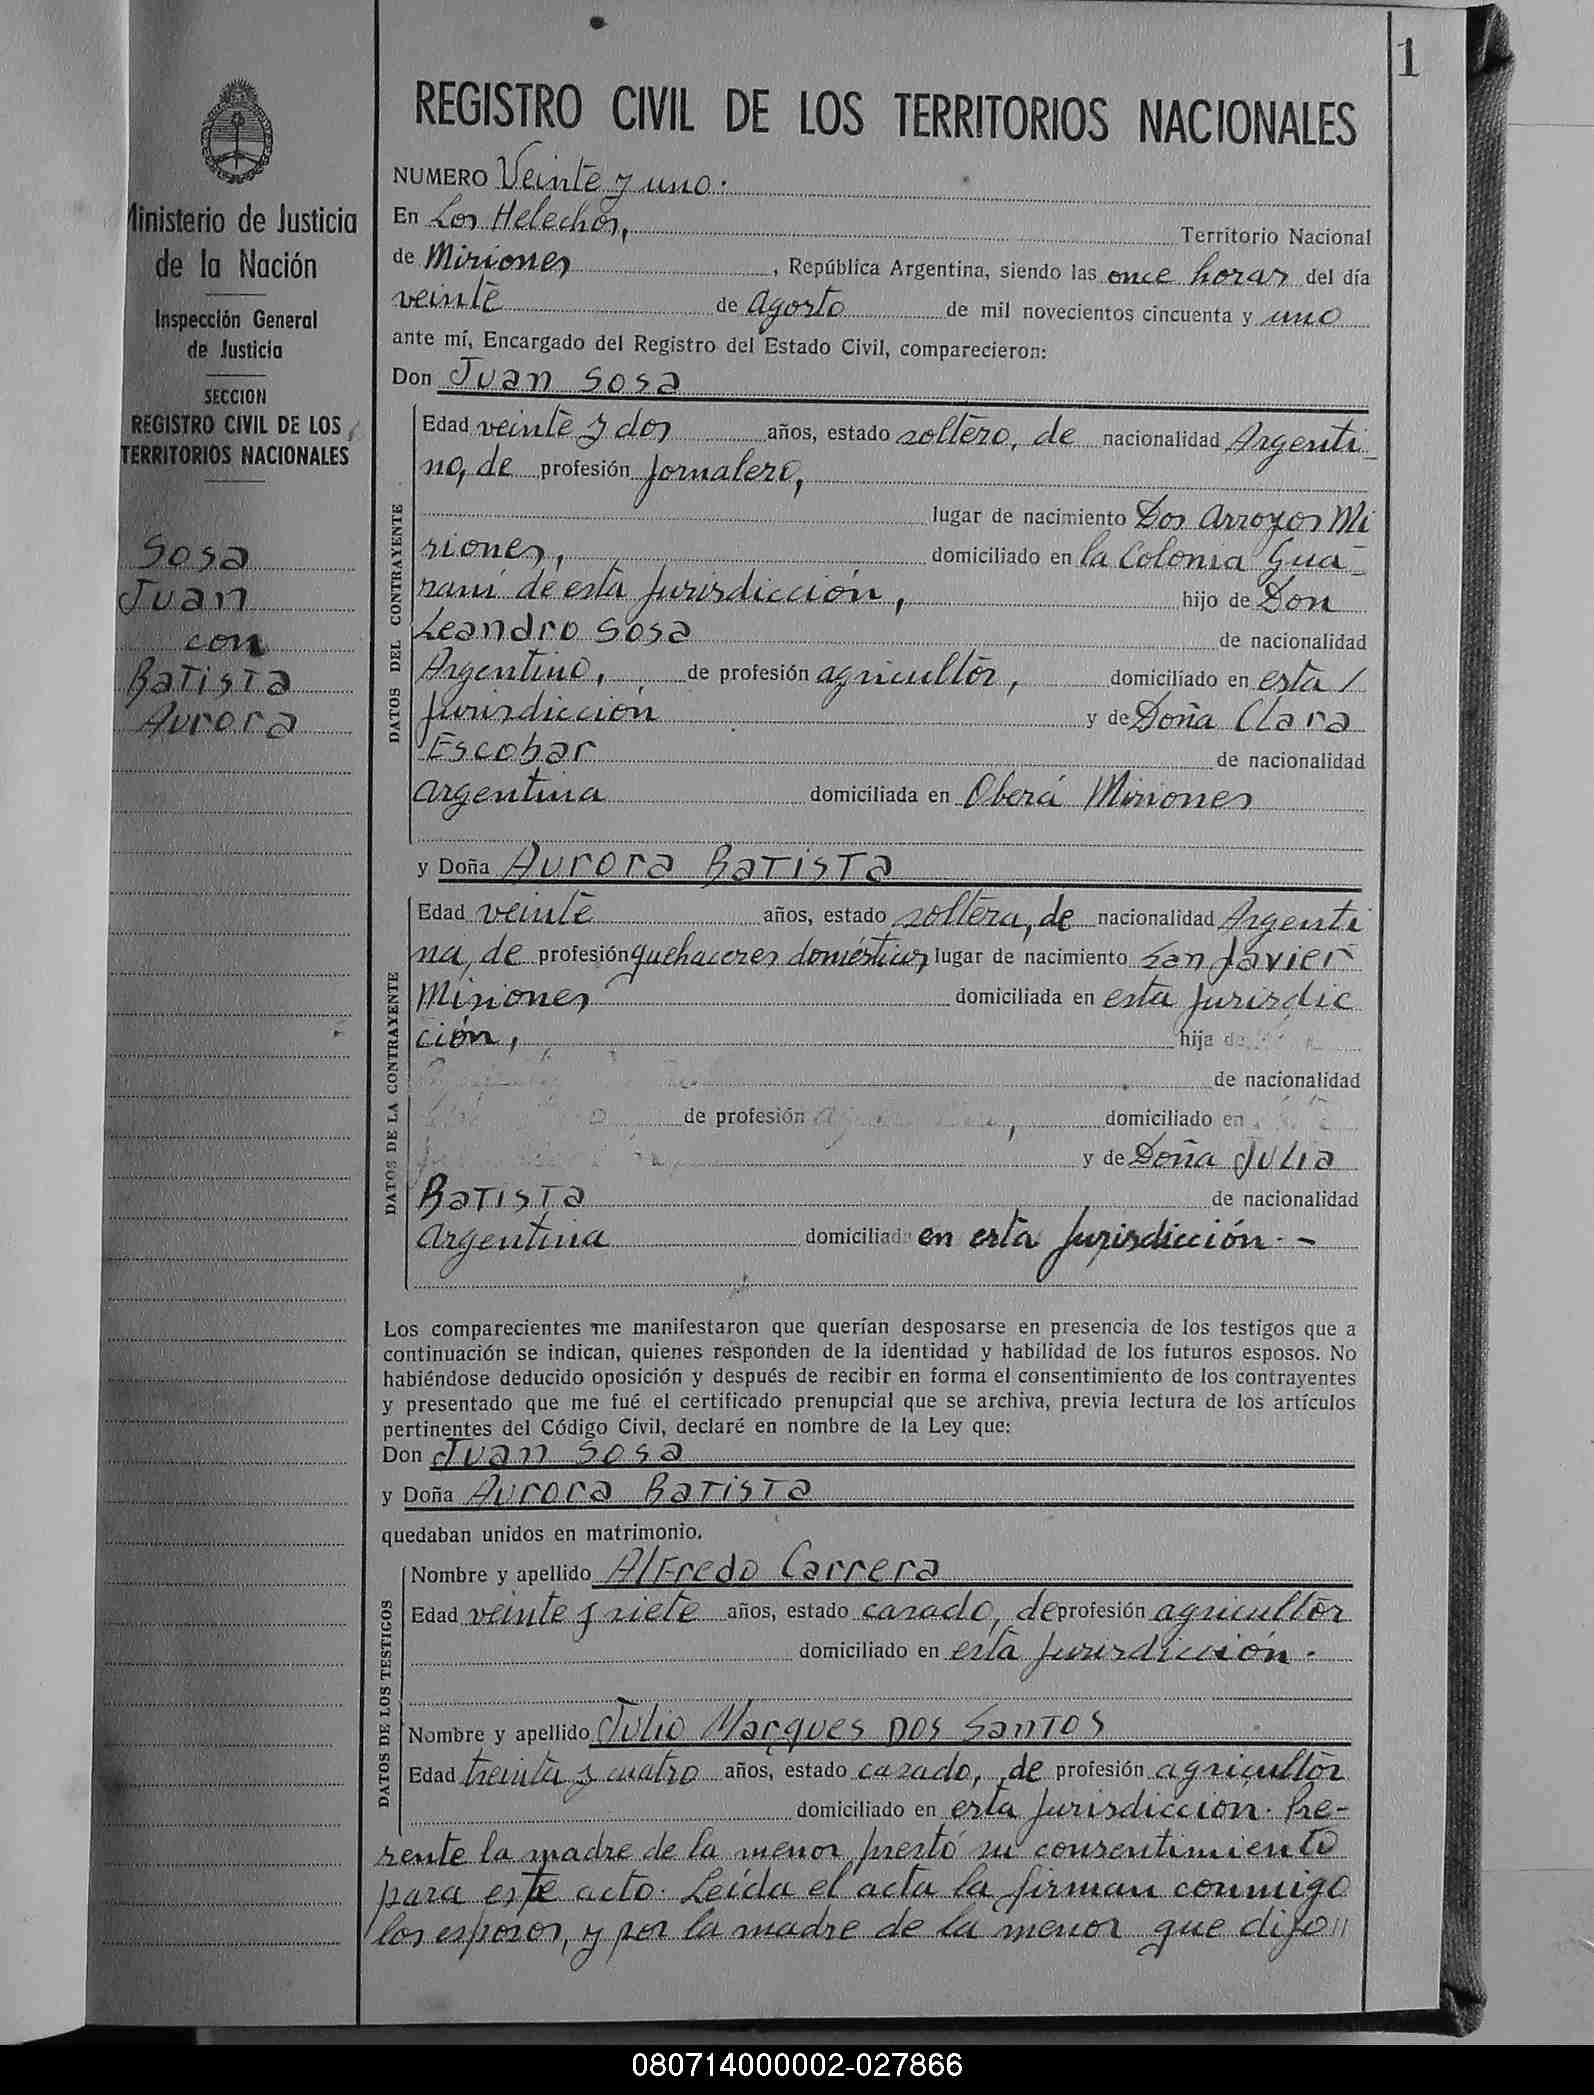 1
REGISTRO CIVIL DE LOS TERRITORIOS NACIONALES
Ministerio de Justicia
de la Nación
Inspección General
de Justicia
SECCION
REGISTRO CIVIL DE LOS
TERRITORIOS NACIONALES
Sosa
Juan
con
Batista
Aurora
NUMERO Veinte y uno.
En Los Helechos, Territorio Nacional
de Misiones, República Argentina, siendo las once horas del día
veinte de agosto de mil novecientos cincuenta y uno
ante mí, Encargado del Registro del Estado Civil, comparecieron:
Don Juan Sosa
DATOS DEL CONTRAYENTE
Edad veinte y dos años, estado soltero, de nacionalidad Argenti-
no, de profesión jornalero,
lugar de nacimiento Dos Arroyos Mi
siones, domiciliado en la Colonia Gua-
raní de esta jurisdicción, hijo de Don
Leandro Sosa de nacionalidad
Argentino, de profesión agricultor, domiciliado en esta /
jurisdicción y de Doña Clara
Escobar de nacionalidad
argentina domiciliada en Oberá Misiones
y Doña Aurora Batista
DATOS DE LA CONTRAYENTE
Edad veinte años, estado soltera, de nacionalidad Argenti
na, de profesión quehaceres domésticos, lugar de nacimiento San Javier
Misiones domiciliada en esta jurisdic
ción, hija de
de nacionalidad
de profesión domiciliado en
y de Doña Julia
Batista de nacionalidad
argentina domiciliada en esta jurisdicción. -
Los comparecientes me manifestaron que querían desposarse en presencia de los testigos que a
continuación se indican, quienes responden de la identidad y habilidad de los futuros esposos. No
habiéndose deducido oposición y después de recibir en forma el consentimiento de los contrayentes
y presentado que me fué el certificado prenupcial que se archiva, previa lectura de los artículos
pertinentes del Código Civil, declaré en nombre de la Ley que:
Don Juan Sosa
y Doña Aurora Batista
quedaban unidos en matrimonio.
DATOS DE LOS TESTIGOS
Nombre y apellido Alfredo Carrera
Edad veinte y siete años, estado casado, de profesión agricultor
domiciliado en esta jurisdicción.
Nombre y apellido Julio Marques Dos Santos
Edad treinta y cuatro años, estado casado, de profesión agricultor
domiciliado en esta jurisdicción. Pre-
sente la madre de la menor prestó su consentimiento
para este acto. Leída el acta la firman conmigo
los esposos, y por la madre de la menor que dijo //
080714000002-027866